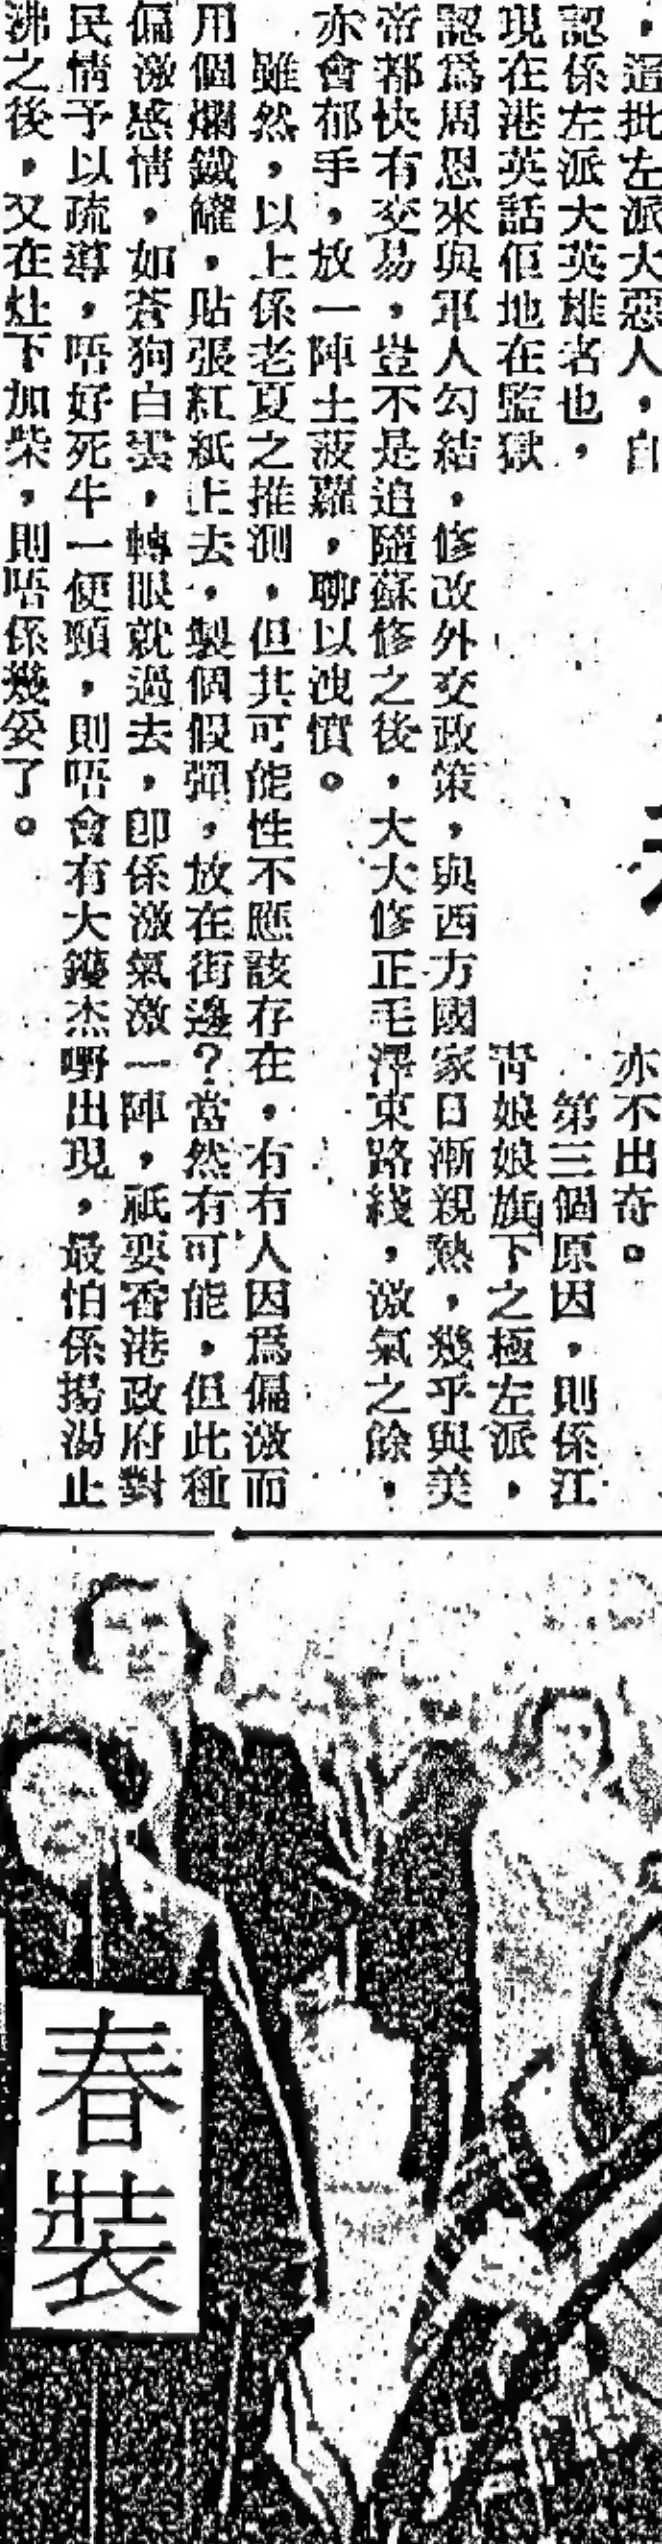 ，這批左派大惡人，自
認係左派大英雄者也，
現在港英話佢地在監獄
亦不出奇。
第三個原因，則係江
青娘娘旗下之極左派，
認爲周恩來與軍人勾結，修改外交政策，與西方國家日漸親熱，幾乎與美
帝都快有交易，豈不是追隨蘇修之後，大大修正毛澤東路綫，激氣之餘，
亦會郁手，放一陣土菠蘿，聊以洩憤。
雖然，以上係老夏之推測，但其可能性不應該存在，有冇人因爲偏激而
用個爛鐵罐，貼張紅紙上去，製個假彈，放在街邊？當然有可能，但此種
偏激感情，如蒼狗白雲，轉眼就過去，卽係激氣激一陣，祇要香港政府對
民情予以疏導，唔好死牛一便頸，則唔會有大鑊杰嘢出現，最怕係揚湯止
沸之後，又在灶下加柴，則唔係幾妥了。
春裝